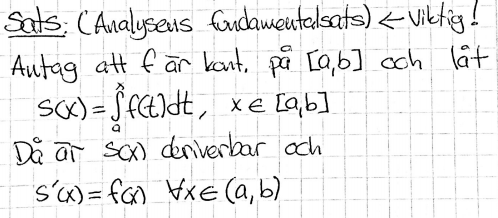 Sats: (Analysens fundamentalsats) ← Viktig!
Antag att f är kont. på [a,b] och låt
S(x) = ∫ₐˣ f(t)dt, x ∈ [a,b]
Då är S(x) deriverbar och
S'(x) = f(x) ∀x ∈ (a,b)